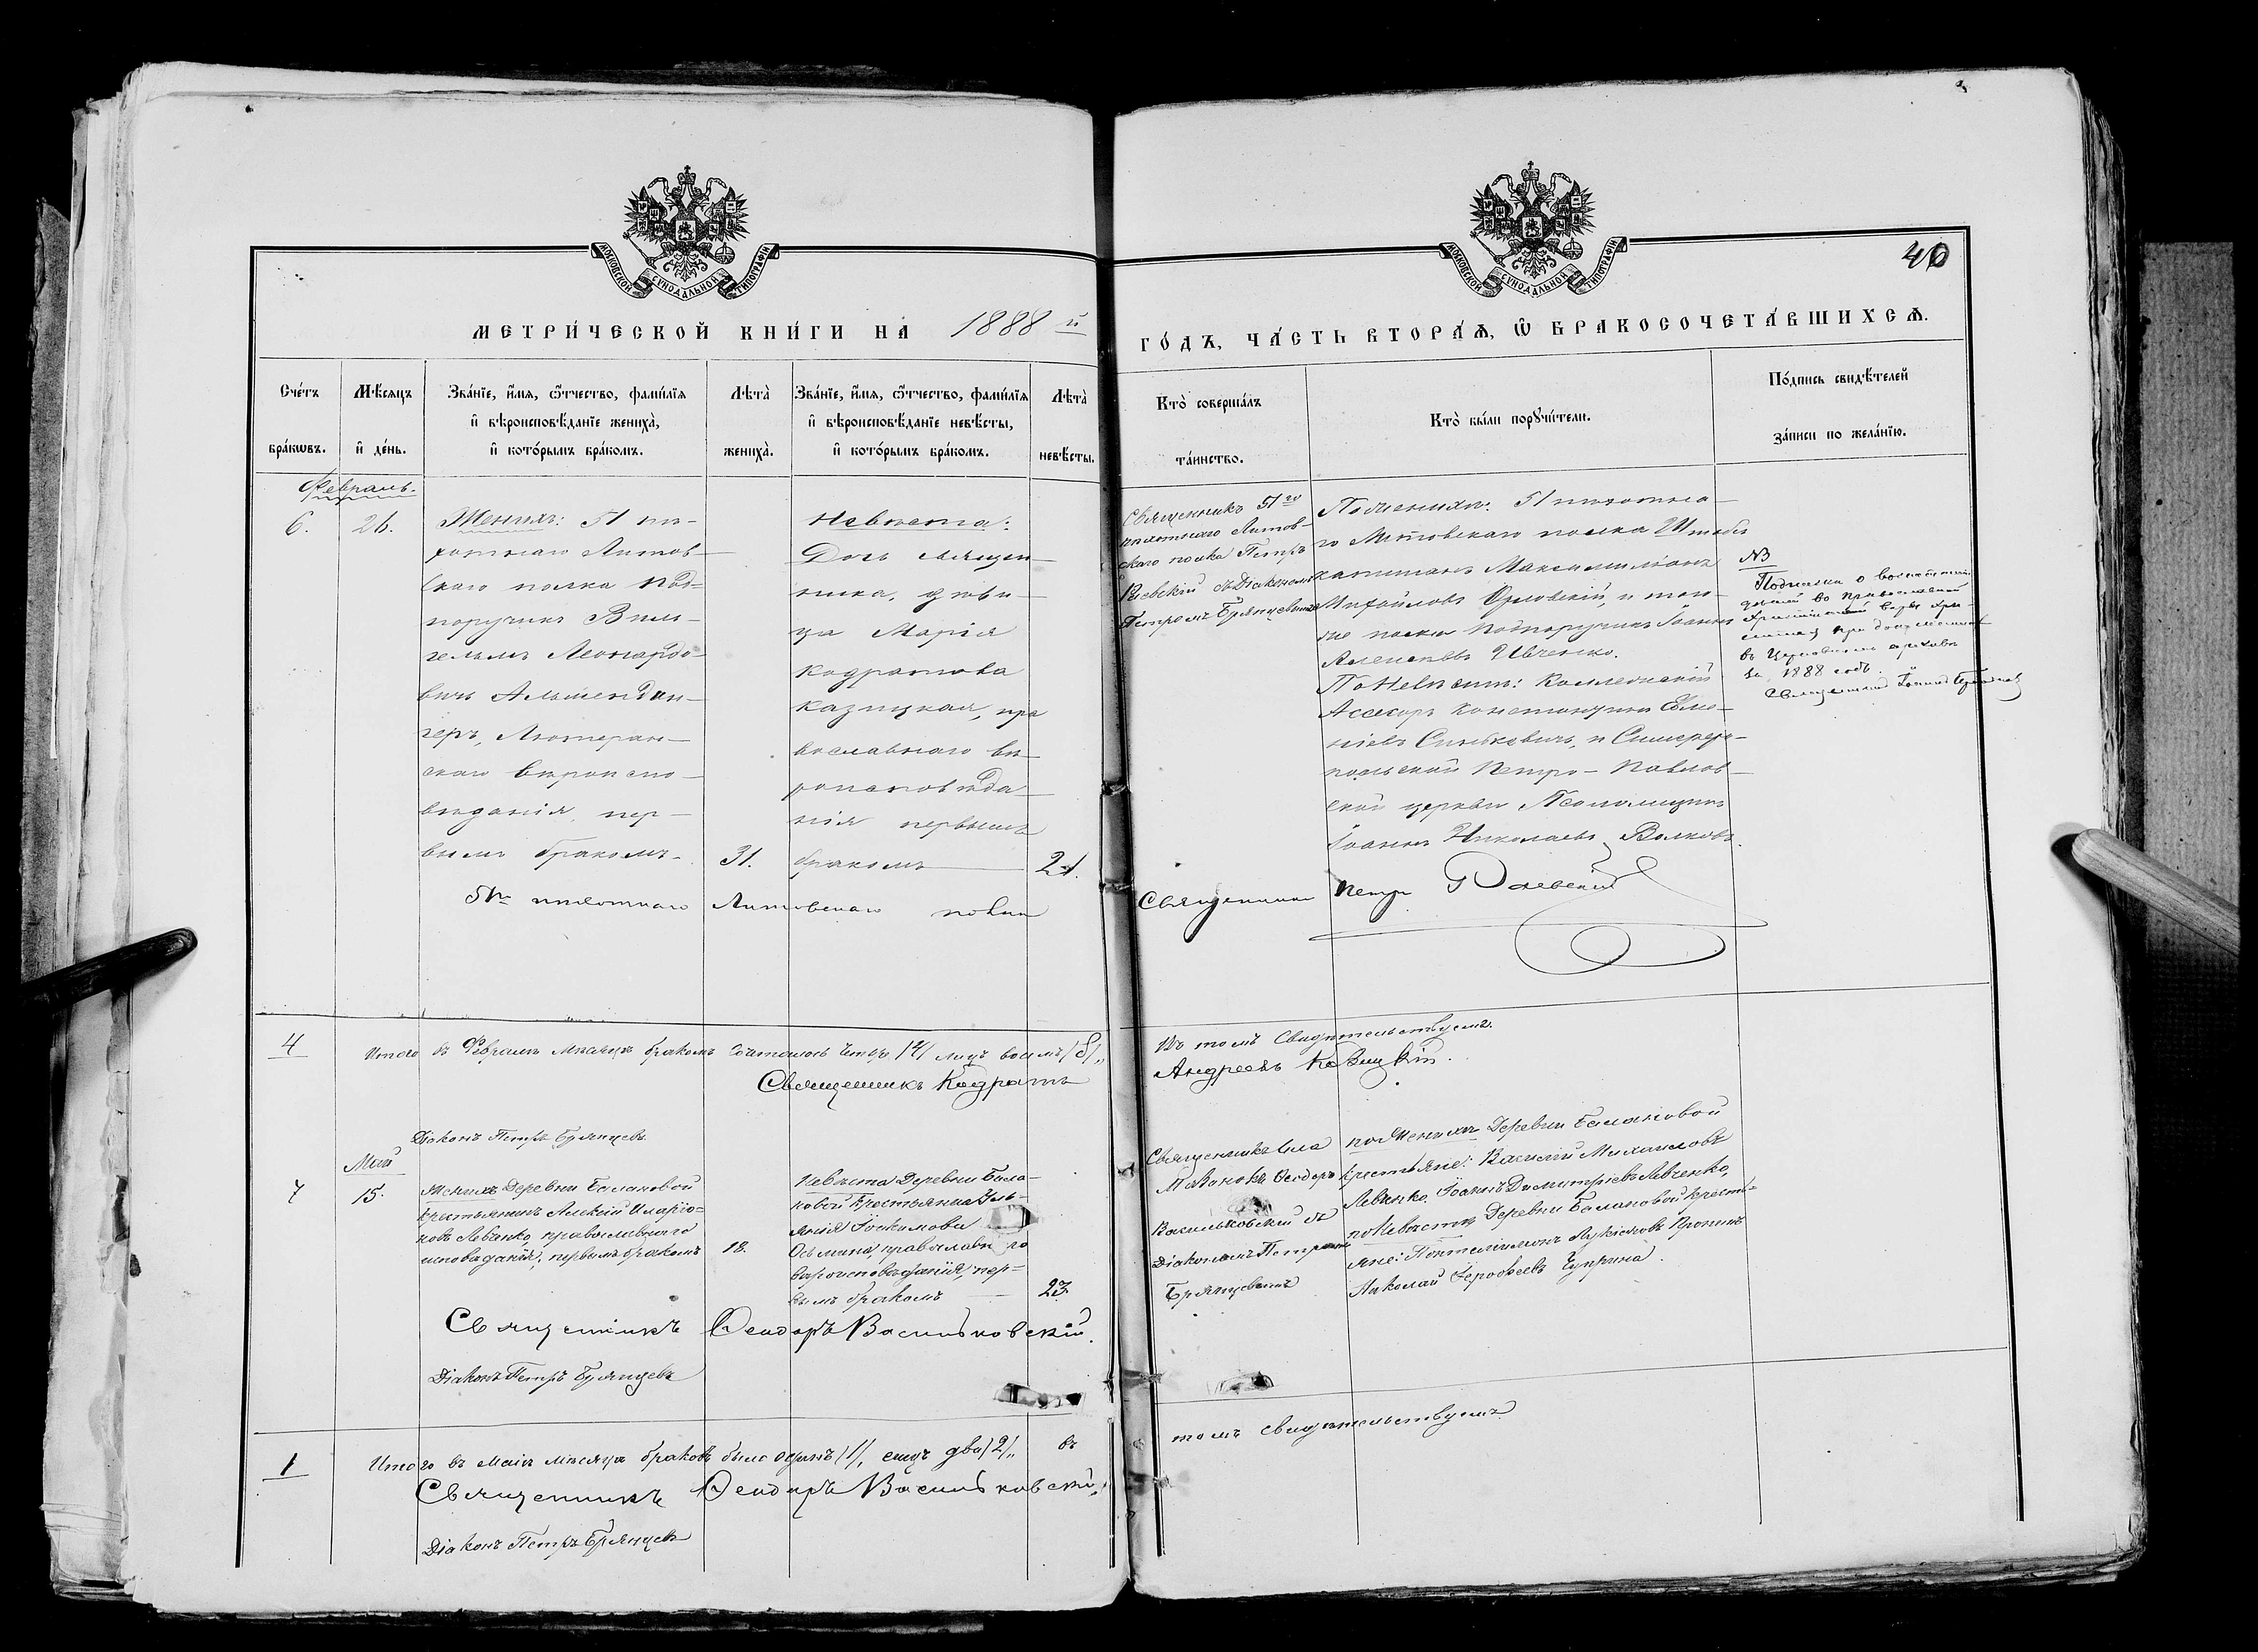 46
МОСКОВСКОЙ СѴНОДАЛЬНОЙ ТИПОГРАФІИ
МОСКОВСКОЙ СѴНОДАЛЬНОЙ ТИПОГРАФІИ
МЕТРИ́ЧЕСКОЙ КНИ́ГИ НА 1888 й
ГО́ДЪ, ЧА́СТЬ ВТОРА́Ѧ, Ѡ БРАКОСОЧЕТА́ВШИХСѦ.
Сче́тъ
бра́кѡвъ.
Мѣ́сѧцъ
и҆ де́нь.
Зва́нїе, и҆́мѧ, ѻ҆́тчество, фамѝлїѧ
и҆ вѣроисповѣ́данїе жениха̀,
и҆ кото́рымъ бра́комъ.
Лѣта̀
жениха̀.
Зва́нїе, и҆́мѧ, ѻ҆́тчество, фамѝлїѧ
и҆ вѣроисповѣ́данїе невѣ́сты,
и҆ кото́рымъ бра́комъ.
Лѣта̀
невѣ́сты.
Кто̀ соверша́лъ
та́инство.
Кто̀ бы́ли порꙋчи́тели.
По́дпись свидѣ́телей
за́писи по жела́нїю.
Февраль.
6.
26.
Женихъ: 51 пѣ-
хотнаго Литов-
скаго полка под-
поручикъ Виль-
гельмъ Леонардо-
вичъ Альмендин-
геръ, Лютеран-
скаго вѣроиспо-
вѣданія, пер-
вымъ бракомъ.
31.
Невѣста:
Дочь священ-
ника, дѣви-
ца Марія
Кодратова
Казицкая, пра
вославнаго вѣ-
роисповѣда-
нія первымъ
бракомъ
21.
Священникъ 51го
пѣхотнаго Литов-
скаго полка Петръ
Раевскій съ Діакономъ
Петромъ Брянцевымъ
По женихѣ: 51 пѣхотна-
го Литовскаго полка Штабсъ
капитанъ Максимиліанъ
Михайловъ Орловскій, и того-
же полка подпоручикъ Іоаннъ
Алексѣевъ Ивченко.
По невѣстѣ: Коллежскій
Асесоръ Константинъ Евме-
ніевъ Синьковичъ, и Симферо-
польской Петро-Павлов-
ской церкви Псаломщикъ
Іоаннъ Николаевъ Волковъ.
NB
Подписка о воспитаніи
дѣтей во православной
Христіанской вѣрѣ хра-
нится при документахъ
въ Церковномъ архивѣ
за 1888 годъ.
Священникъ
51го пѣхотнаго Литовскаго полка Священникъ Петръ Раевскій
4
Итого въ Февралѣ мѣсяцѣ бракомъ сочеталось четыре /4/ лицъ восемь /8/,, Въ томъ Свидѣтельствуемъ.
Священникъ Кодратъ Андреевъ Казицкій.
Діаконъ Петръ Брянцевъ
Май
7
15.
Женихъ Деревни Балановой
крестьянинъ Алексій Иларіо-
новъ Левченко, православнаго
исповѣданія, первымъ бракомъ
18.
Невѣста Деревни Бала-
новой Крестьянка Уль-
янія Іоакимова
Осьмина, православнаго
вѣроисповѣданія, пер-
вымъ бракомъ
23.
Священникъ села
Мазанокъ Ѳеодоръ
Васильковскій съ
Діакономъ Петромъ
Брянцевымъ
по Женихѣ Деревни Балановой
крестьяне: Василій Михаиловъ
Левченко, Іоаннъ Димитріевъ Левченко,
по Невѣстѣ Деревни Балановой кресть-
яне: Пантелеимонъ Лукіановъ Пронинъ
Николай Іероѳеевъ Чуприна.
Священникъ Ѳеодоръ Васильковскій.
Діаконъ Петръ Брянцевъ
1
Итого въ Маѣ мѣсяцѣ браковъ было одинъ /1/, лицъ два /2/,, въ томъ свидѣтельствуемъ
Священникъ Ѳеодоръ Васильковскій
Діаконъ Петръ Брянцевъ